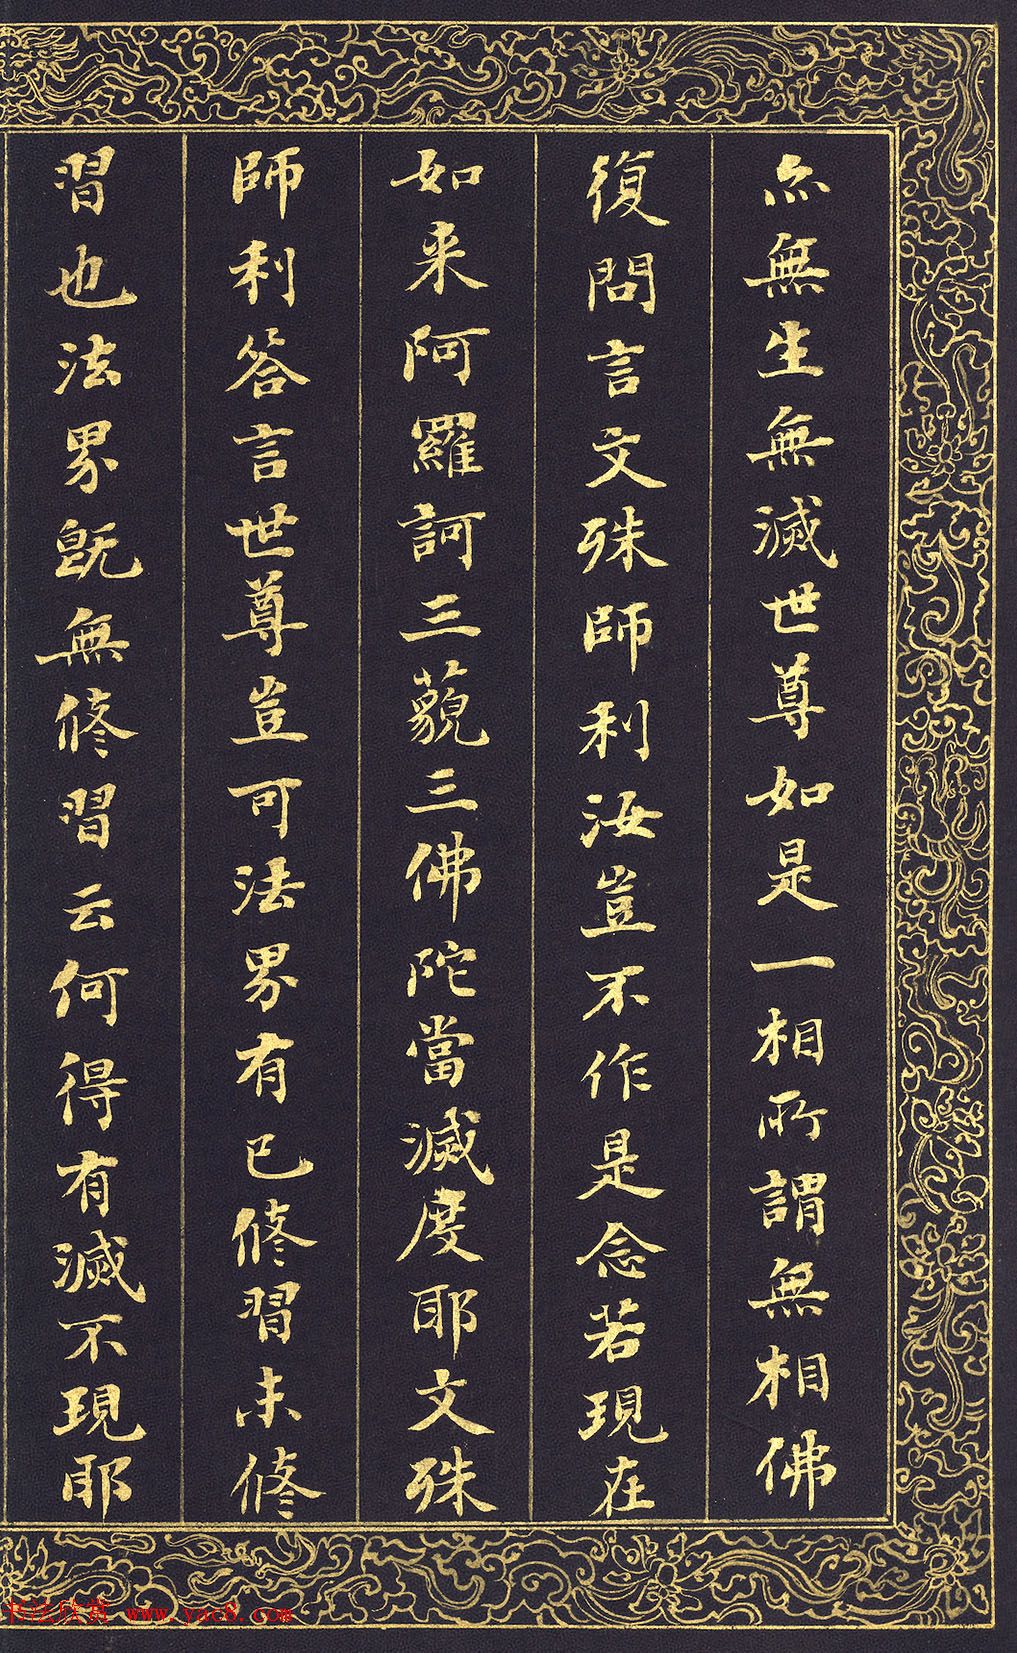 亦無生無滅世尊如是一相所謂無相佛
復問言文殊師利汝豈不作是念若現在
如来阿羅訶三藐三佛陀當滅度耶文殊
師利答言世尊豈可法界有已修習未修
習也法界既無修習云何得有滅不現耶
书法欣赏 www.yac8.com